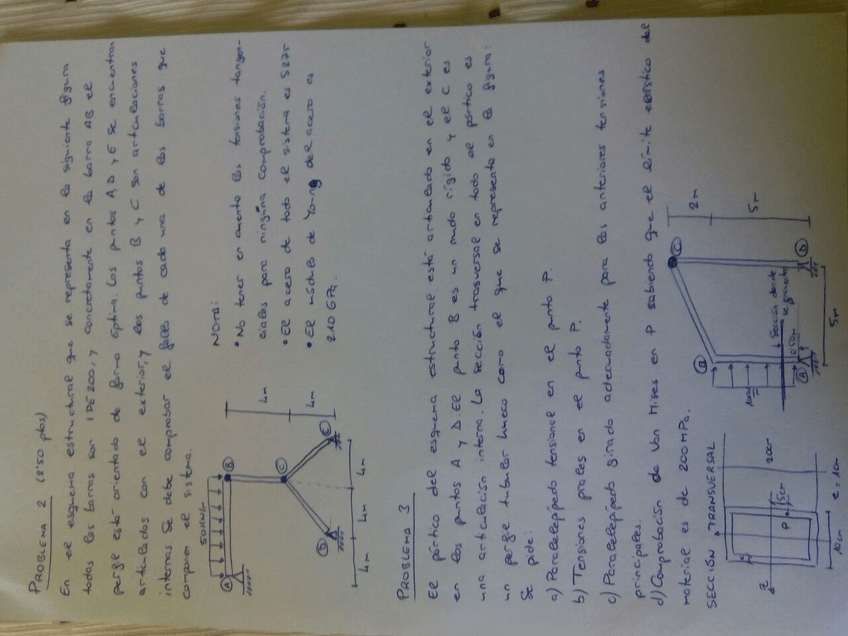 PROBLEMA 2 (2'50 ptos)
En el esquema estructural que se representa en la siguiente figura
todas las barras son IPE 200, y concretamente en la barra AB el
perfil está orientado de forma óptima. Los puntos A, D y E se encuentran
articulados con el exterior, y los puntos B y C son articulaciones
internas. Se debe comprobar el fallo de cada una de las barras que
componen el sistema.
50 kN/m
A
B
C
D
E
4m
4m
4m
4m
4m
NOTA:
• No tener en cuenta las tensiones tangen-
ciales para ninguna comprobación.
• El acero de todo el sistema es S275
• El módulo de Young del acero es
210 GPa.
PROBLEMA 3
El pórtico del esquema estructural está articulado en el exterior
en los puntos A y D. El punto B es un nudo rígido y el C es
una articulación interna. La sección trasversal en todo el pórtico es
un perfil tubular hueco como el que se representa en la figura:
Se pide:
a) Paralelepípedo tensional en el punto P.
b) Tensiones ppales en el punto P.
c) Paralelepípedo girado adecuadamente para las anteriores tensiones
principales.
d) Comprobación de Von Mises en P sabiendo que el límite elástico del
material es de 200 MPa.
SECCIÓN TRANSVERSAL
P
5cm
20cm
10cm
e = 1cm
B
C
A
D
0'50m
2m
5m
5m